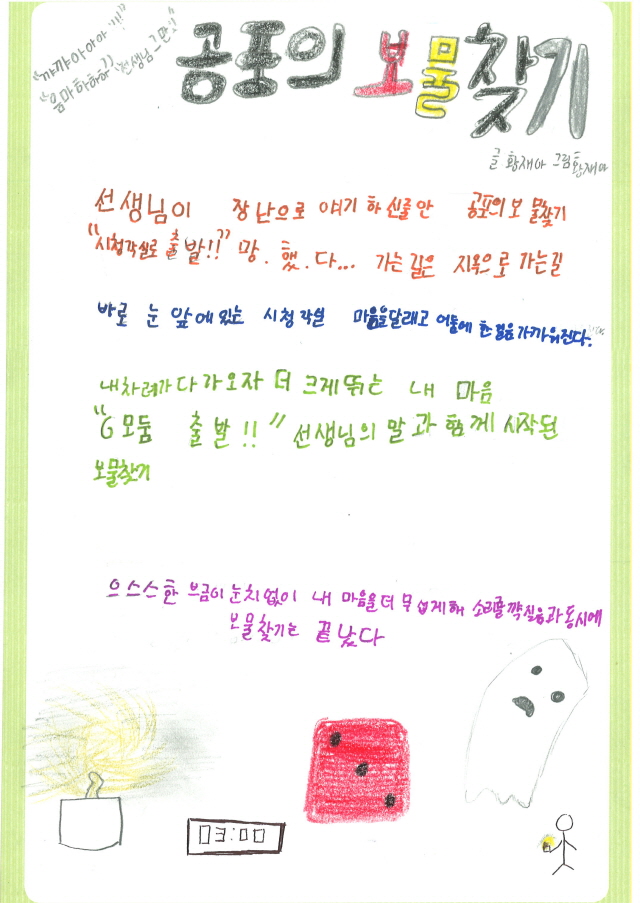 "꺄꺄아아아!!!"
"움마하하하!"
"선생님 그만!!"
공포의 보물찾기
글 황재아 그림 황재아
선생님이 장난으로 얘기 하신줄 안 공포의 보물찾기
"시청각실로 출발!!" 망.했.다... 가는길은 지옥으로 가는길
바로 눈 앞에 있는 시청각실 마음을달래고 어둠에 한 걸음 가까워진다.
내차례가 다가오자 더 크게뛰는 내 마음
"6모둠 출발!!" 선생님의 말과 함께 시작된
보물찾기
으스스한 브금이 눈치없이 내 마음을 더 무섭게해 소리를 꺅 질음과 동시에
보물찾기는 끝났다
03:00